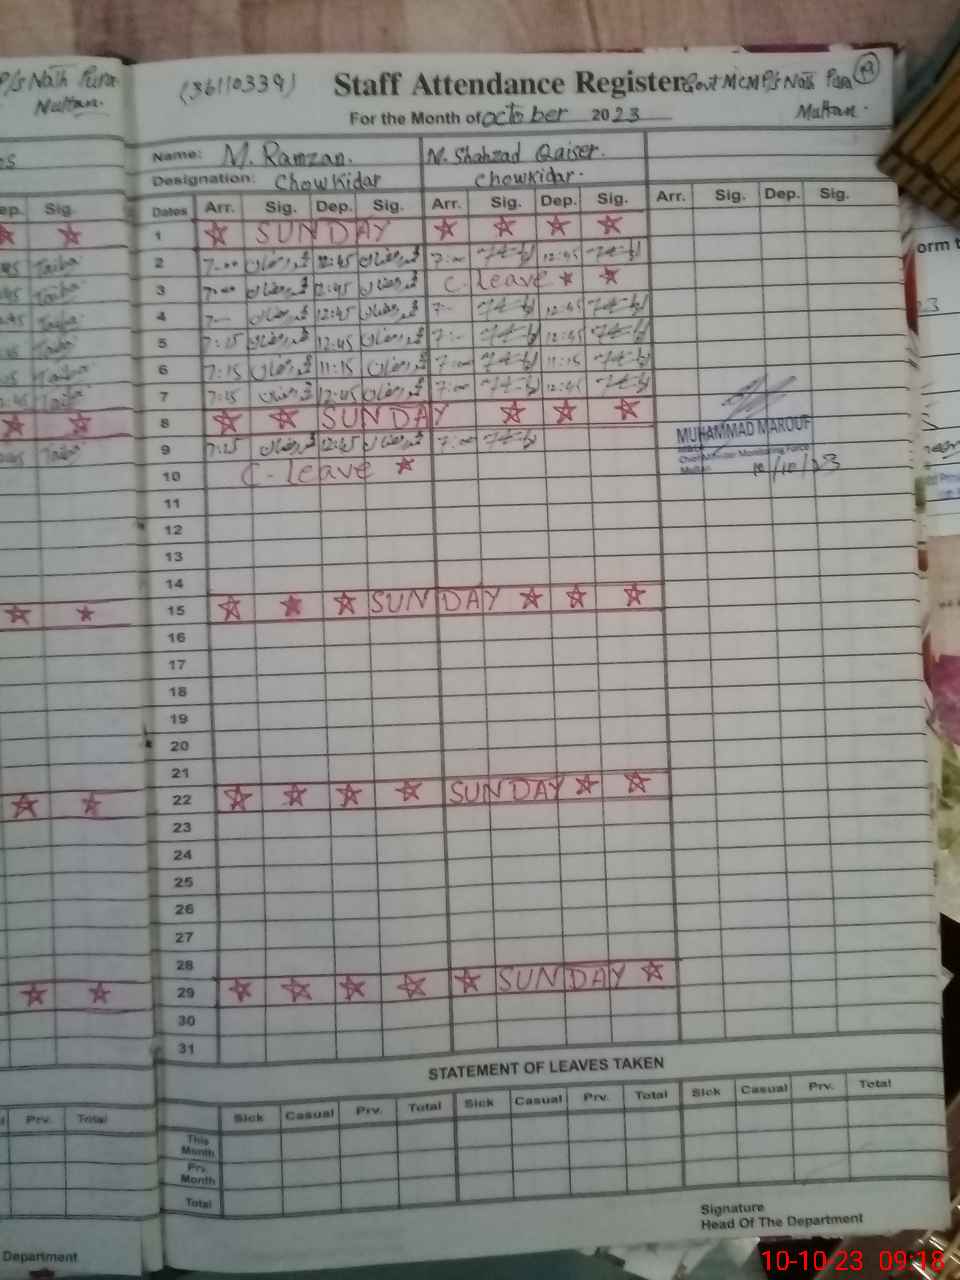 P/s Nath Pura
Multan.
(36110339) Staff Attendance Register Govt MCMP/s Nath Pura
Multan.
For the Month of October 2023
Name: M. Ramzan. M. Shahzad Qaiser.
Designation: Chowkidar Chowkidar.
Dates Arr. Sig. Dep. Sig. Arr. Sig. Dep. Sig. Arr. Sig. Dep. Sig.
1 SUNDAY
2 7:00 محمد رمضان 12:45 محمد رمضان 7:00 12:45
3 7:00 محمد رمضان 12:45 محمد رمضان C. leave
4 7:- محمد رمضان 12:45 محمد رمضان 7:- 12:45
5 7:15 محمد رمضان 12:45 محمد رمضان 7:- 12:45
6 7:15 محمد رمضان 11:15 محمد رمضان 7:00 11:15
7 7:15 محمد رمضان 12:45 محمد رمضان 7:00 12:45
8 SUNDAY
9 7:15 محمد رمضان 12:45 محمد رمضان 7:00
10 C. leave
MUHAMMAD MAROUF
Chief Minister Monitoring Force
Multan 10/10/23
11
12
13
14
15 SUNDAY
16
17
18
19
20
21
22 SUNDAY
23
24
25
26
27
28
29 SUNDAY
30
31
STATEMENT OF LEAVES TAKEN
Sick Casual Prv. Total Sick Casual Prv. Total Sick Casual Prv. Total
This Month
Prv. Month
Total
Signature
Head Of The Department
ep. Sig.
Taiba
Taiba
Taiba
Taiba
Taiba
Taiba
Taiba
Prv. Total
Department
10-10-23 09:18